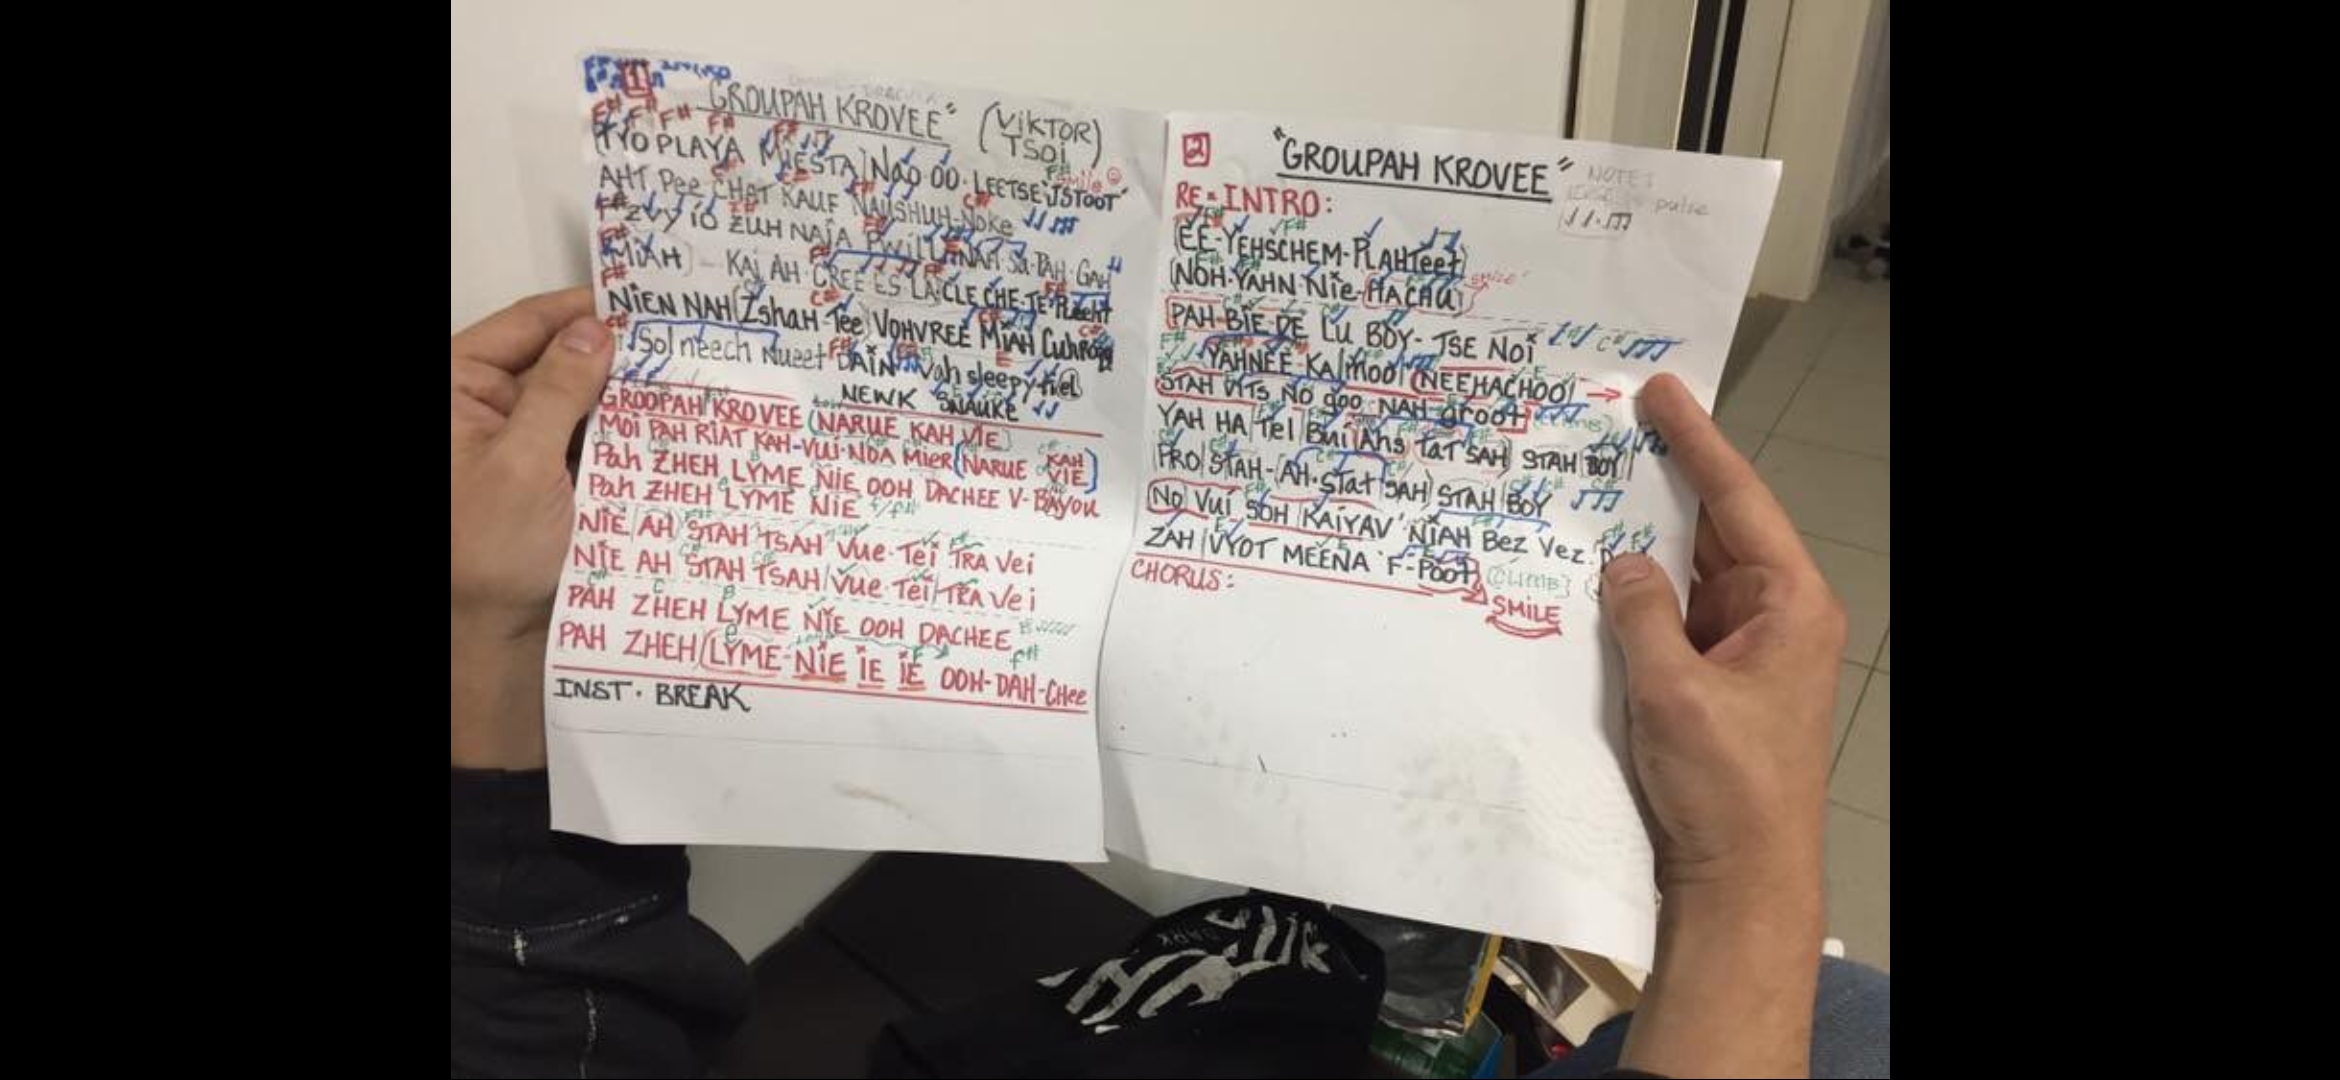 1
"GROUPAH KROVEE" (VIKTOR TSOI)
TYO PLAYA MIESTA NAO OO-LEETSE'JSTOOT"
AHT Pee CHAT KAUF NAUSHUH-Noke
ZVY IO ZUH NAJA PWILL NAH Sa-PAH-GAH
(MIAH) KAJ AH CREE ES LA CLE CHE-TE-PLEEHT
NIEN NAH ZshaH-Tee VOHVREE MIAH
Solneech Nueet DAIN Vah sleepy
NEWK SNAUKE
GROOPAH KROVEE (NARUE KAH VIE)
MOI PAH RIAT KAH-VUI-NOA MIER (NARUE KAH VIE)
Pah ZHEH LYME NIE OOH DACHEE V-BAYOU
Pah ZHEH LYME NIE
NIE AH STAH TSAH VUE-TEI TRA Vei
NIE AH STAH TSAH VUE-TEI TRA Vei
PAH ZHEH LYME NIE OOH DACHEE
PAH ZHEH (LYME-NIE IE IE OOH-DAH-CHEE
INST. BREAK
2
"GROUPAH KROVEE"
NOTE: pulse
RE-INTRO:
(EE-YEHSCHEM-PLAHTeet)
(NOH-YAHN-Nie-HACHU) smile
PAH-BIE-DE LU BOY-TSE NOI
YAHNEE-KAMOOI (NEEHACHOO)
STAH VITS NO goo NAH groot (CLIMB)
YAH HA Tei BUI Ahs TaT SAH) STAH BOY
PRO STAH-(AH-STAT SAH) STAH BOY
(No VUI SOH KAIYAV' NIAH Bez Vez
ZAH VYOT MEENA 'F-POOT) (CLIMB)
CHORUS:
SMILE